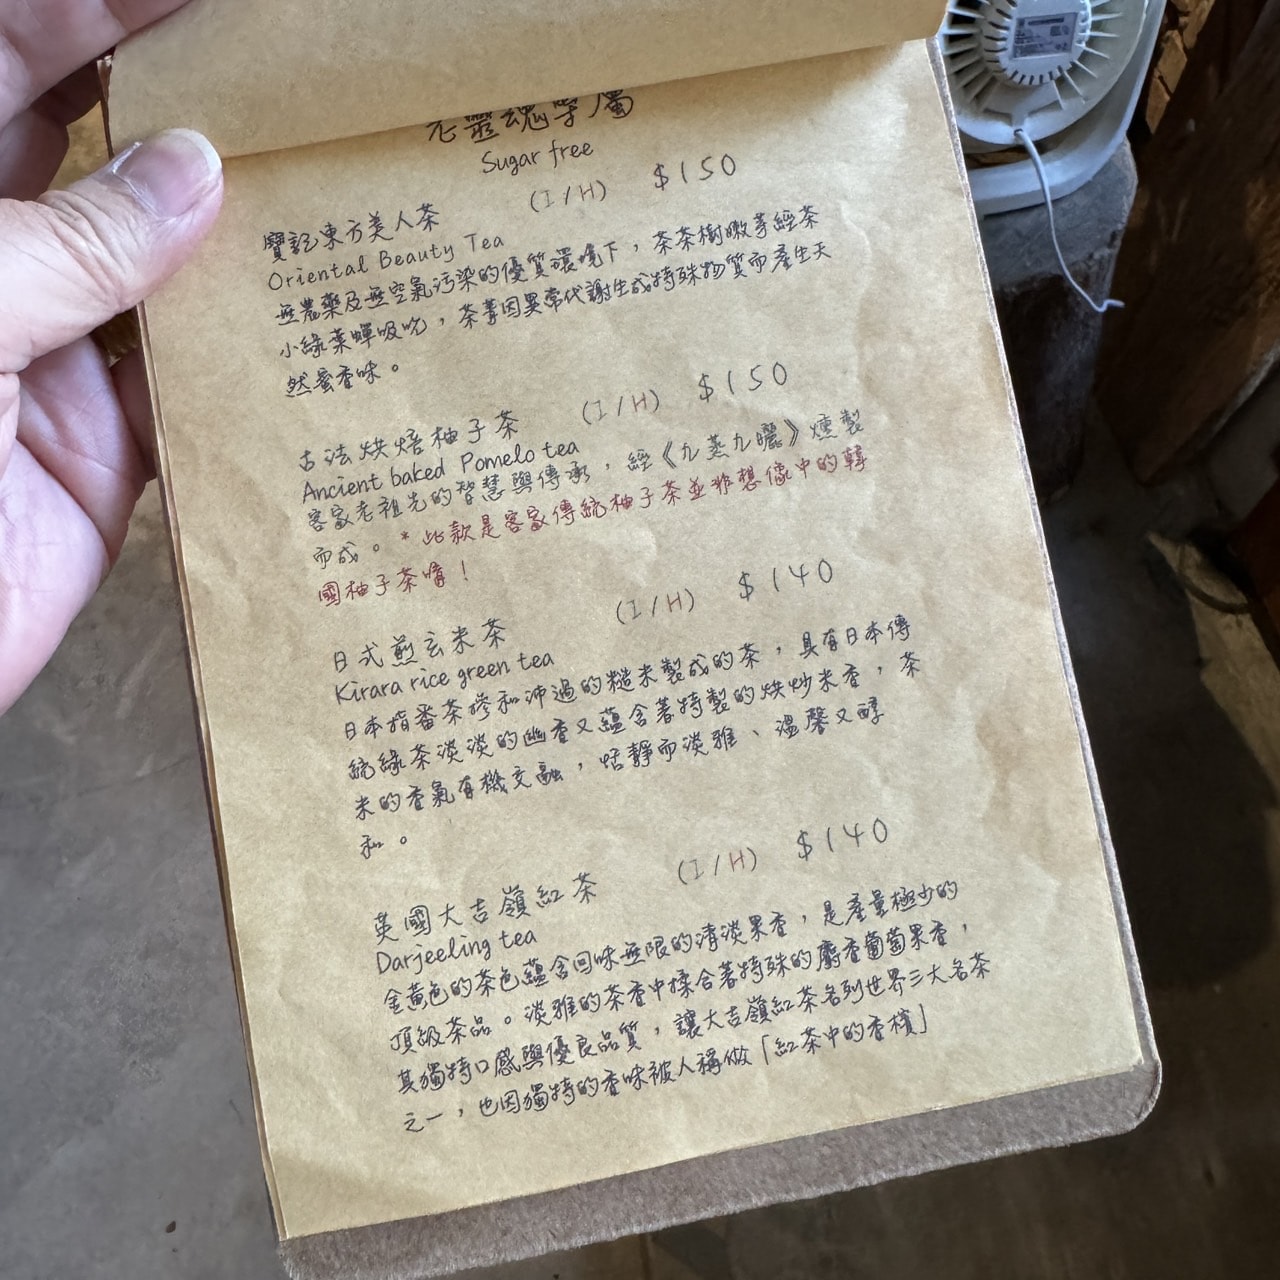 老靈魂專屬
Sugar free
寶記東方美人茶 (I/H) $150
Oriental Beauty Tea
無農藥及無空氣污染的優質環境下，茶茶樹嫩芽經茶
小綠葉蟬吸吮，茶菁因異常代謝生成特殊物質而產生天
然蜜香味。
古法烘焙柚子茶 (I/H) $150
Ancient baked Pomelo tea
客家老祖先的智慧與傳承，經《九蒸九曬》燻製
而成。*此款是客家傳統柚子茶並非想像中的韓
國柚子茶唷！
日式煎玄米茶 (I/H) $140
Kirara rice green tea
日本指番茶摻和沛過的糙米製成的茶，具有日本傳
統綠茶淡淡的幽香又蘊含著特製的烘炒米香，茶
米的香氣有機交融，恬靜而淡雅、溫馨又醇
和。
英國大吉嶺紅茶 (I/H) $140
Darjeeling tea
金黃色的茶色蘊含回味無限的清淡果香，是產量極少的
頂級茶品。淡雅的茶香中揉合著特殊的麝香葡萄果香，
其獨特口感與優良品質，讓大吉嶺紅茶名列世界三大名茶
之一，也因獨特的香味被人稱做「紅茶中的香檳」